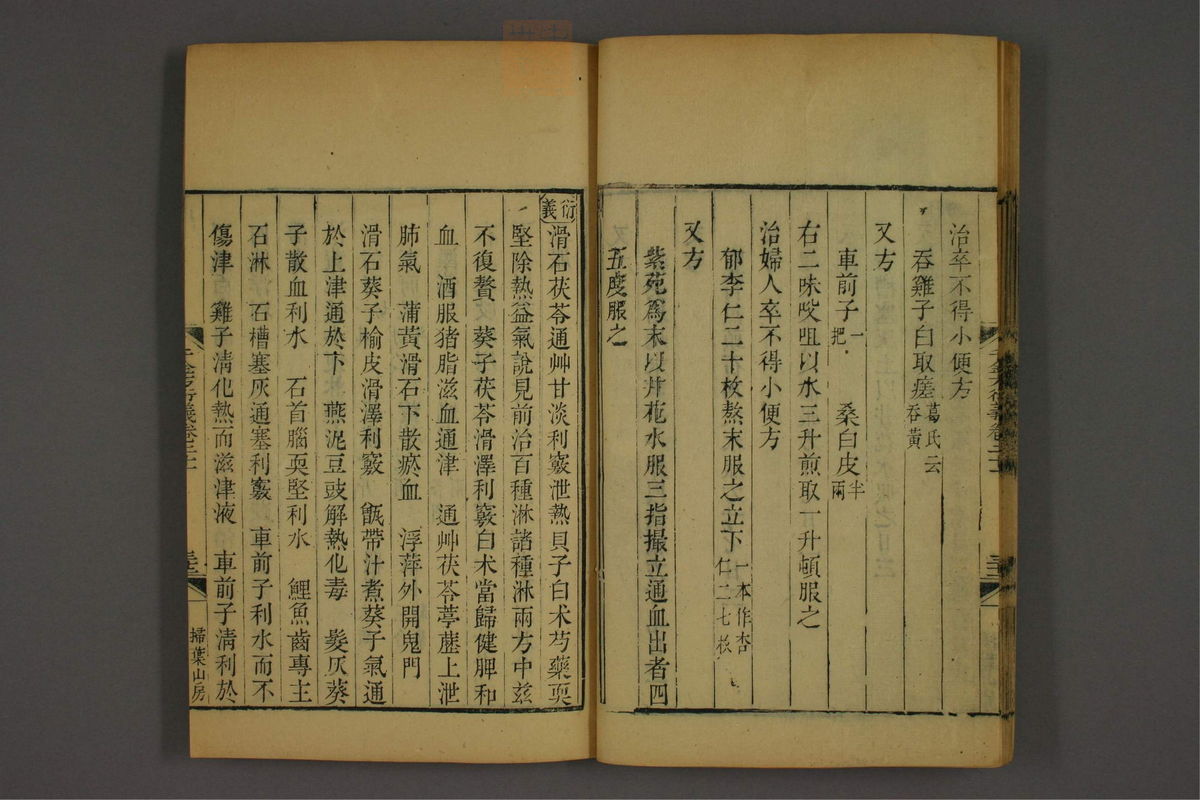 治卒不得小便方
吞雞子白取瘥葛氏云吞黃
又方
車前子一把 桑白皮半兩
右二味㕮咀以水三升煎取一升頓服之
治婦人卒不得小便方
郁李仁二十枚熬末服之立下一本作杏仁二七枚
又方
紫苑爲末以井花水服三指撮立通血出者四
五度服之
衍義滑石茯苓通艸甘淡利竅泄熱貝子白术芍藥耎
堅除熱益氣說見前治百種淋諸種淋兩方中兹
不復贅 葵子茯苓滑澤利竅白术當歸健脾和
血 酒服猪脂滋血通津 通艸茯苓葶藶上泄
肺氣 蒲黃滑石下散瘀血 浮萍外開鬼門
滑石葵子榆皮滑澤利竅 甑帶汁煮葵子氣通
於上津通於下 燕泥豆豉解熱化毒 髮灰葵
子散血利水 石首腦耎堅利水 鯉魚齒專主
石淋 石槽塞灰通塞利竅 車前子利水而不
傷津 雞子清化熱而滋津液 車前子清利於
掃葉山房